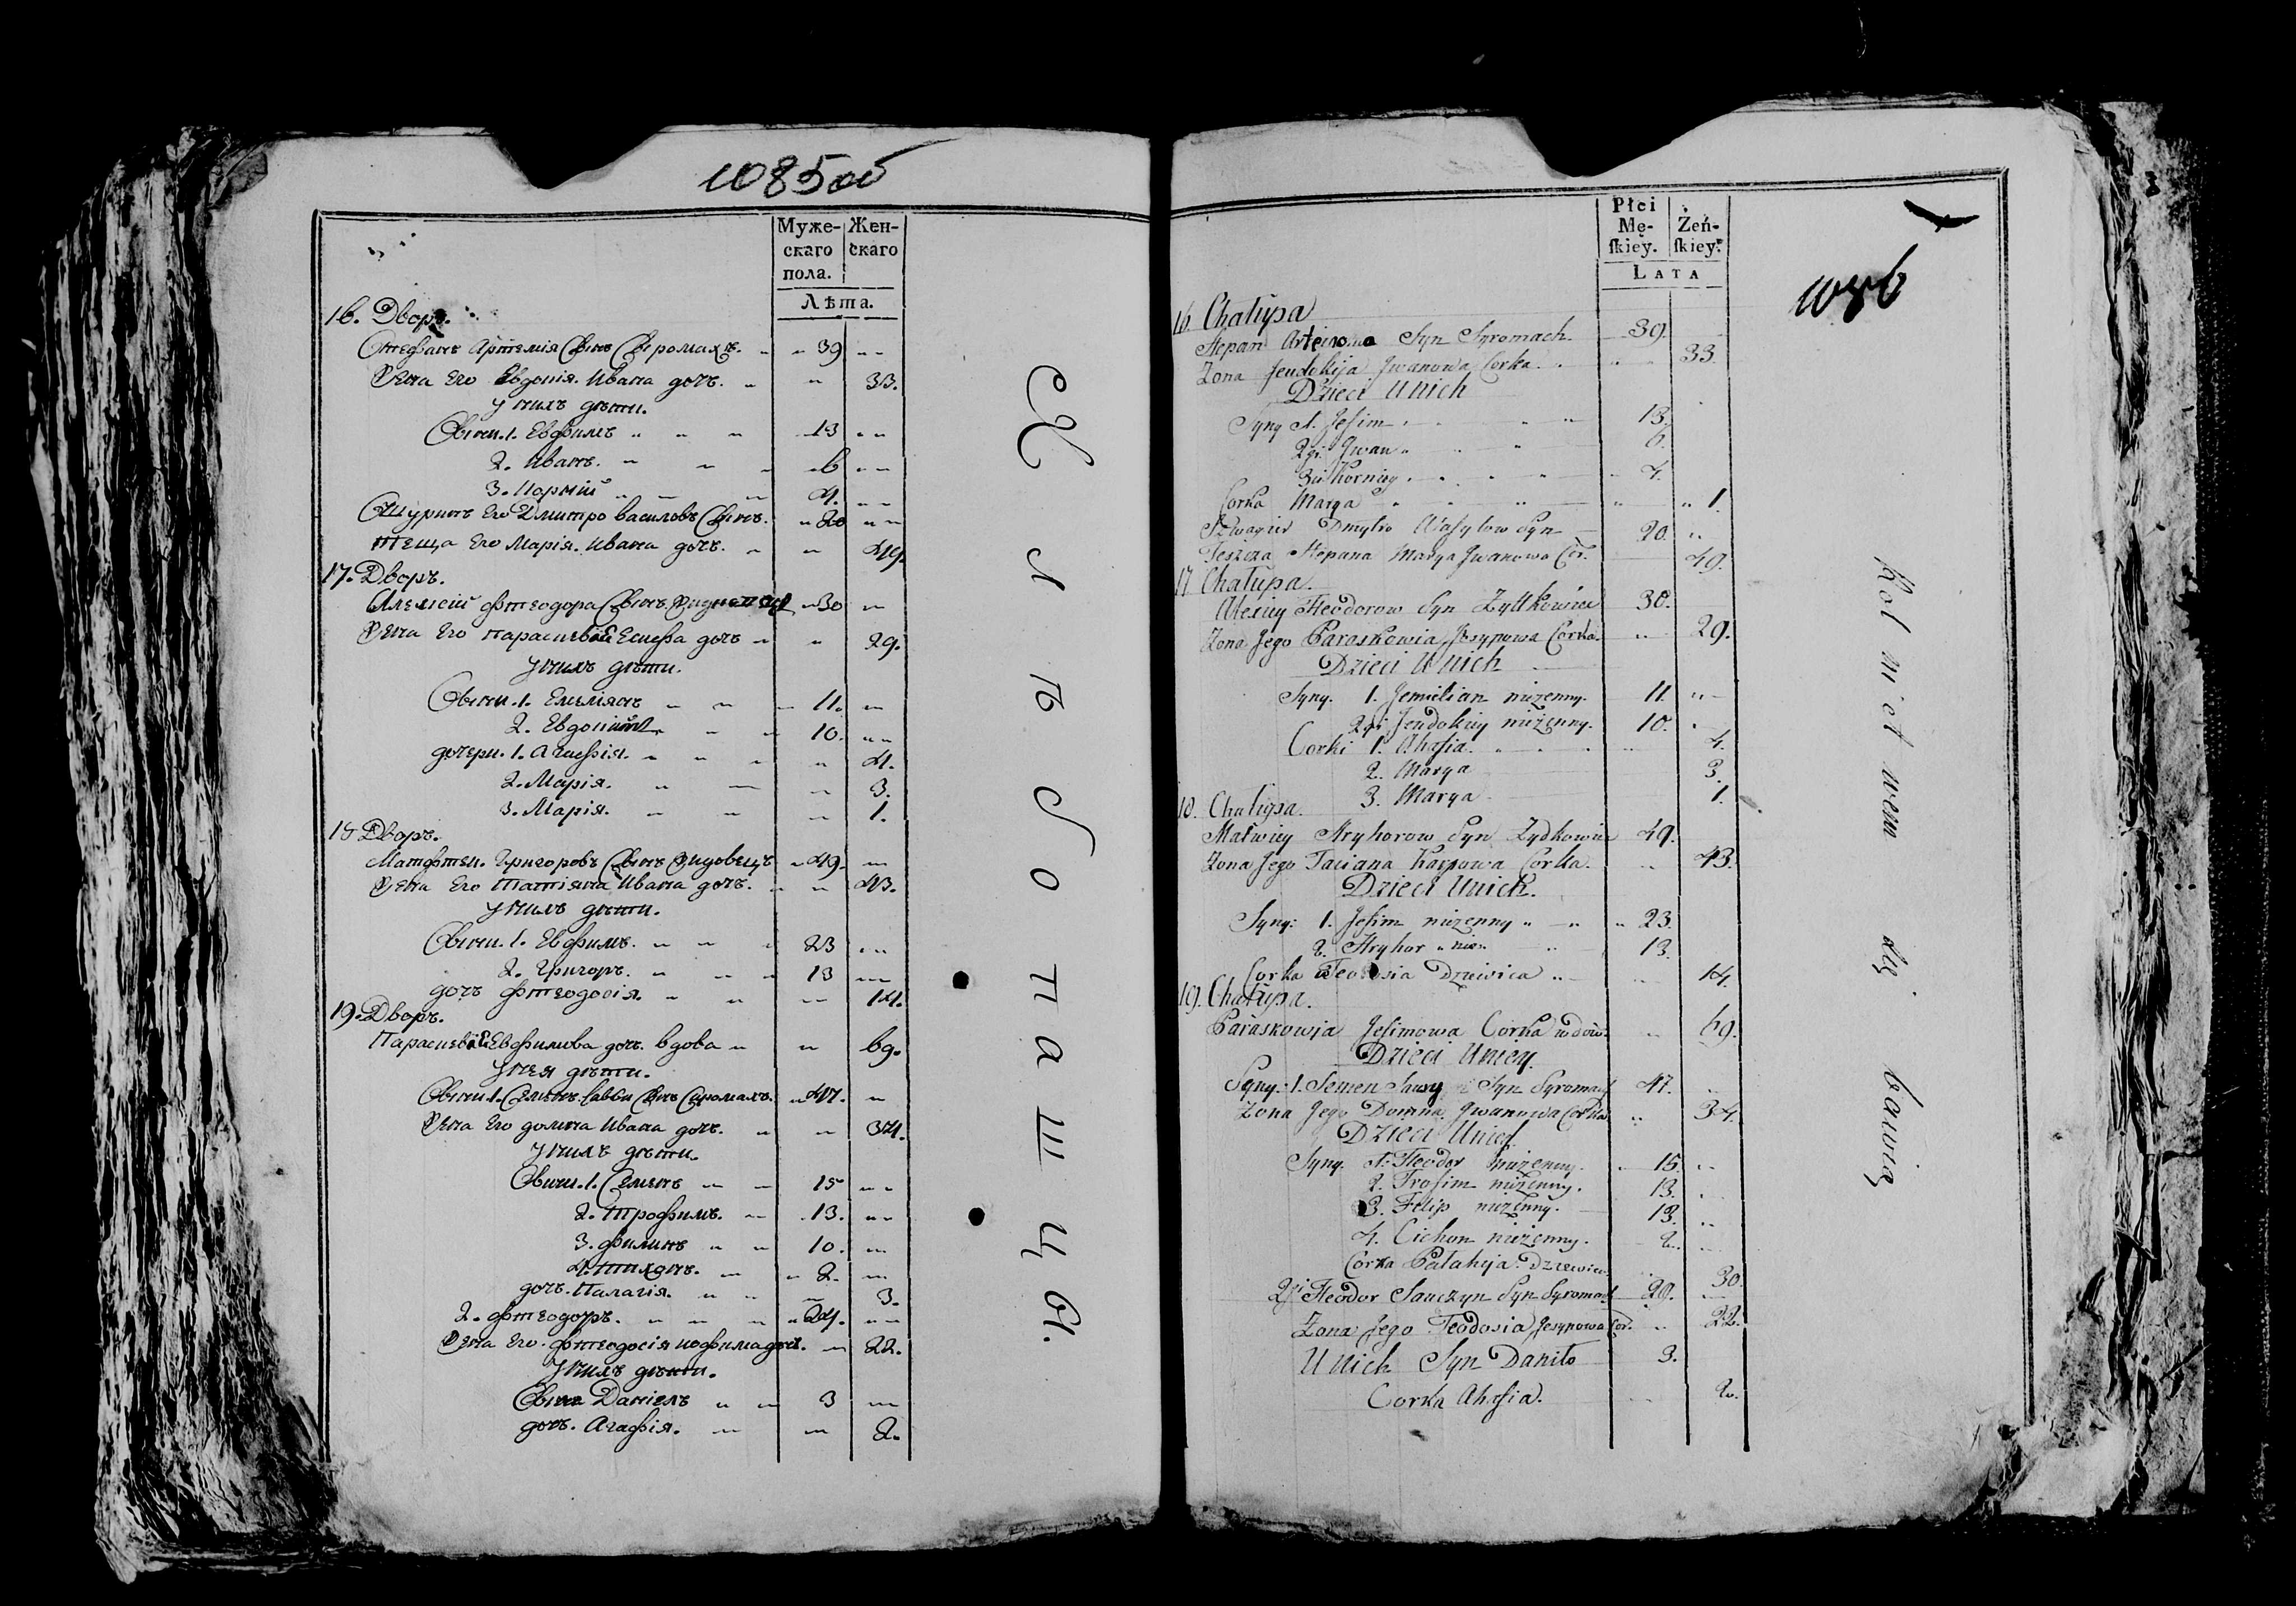 1085об
Муже- Жен-
скаго скаго
пола.
Лѣта.
16. Дворъ.
Стефанъ Артемія Сынъ Сыромахъ. 39
Жена Его Евдокія Ивана дочь. 33.
У нихъ дѣти.
Сыны. 1. Евфимъ 13
2. Иванъ. 6
3. Корнiй 4.
Шуринъ Его Дмитро василовъ Сынъ. 20
теща Его Марія. Ивана дочь. 49.
17. Дворъ.
Алексій Фтеодора Сынъ 30
Жена Его Есифа дочь 29.
У нихъ дѣти.
Сыны. 1. Емеліянъ 11.
2. 10.
дочери. 1. Агафія. 4.
2. Марія. 3.
3. Марія. 1.
18 Дворъ.
Матфтей. Григоровъ Сынъ Жидовецъ 49.
Жена Его Татіяна Ивана дочь. 43.
У нихъ дѣти.
Сыны. 1. Евфимъ. 23
2. Григоръ. 13
дочь Фтеодосія. 14.
19. Дворъ.
Евфимова дочь. вдова 69.
У нея дѣти.
Сыны 1. Семенъ. Савви Сынъ Сиромахъ. 47.
Жена Его домна Ивана дочь. 34.
У нихъ дѣти.
Сыны. 1. Семенъ 15
2. Трофимъ. 13.
3. Филипъ 10.
4. Тихонъ. 2.
дочь. Палагія. 3.
2. Фтеодоръ. 24.
Жена Его. Фтеодосія дочь. 22.
У нихъ дѣти.
Сынъ Даніелъ 3
дочь. Агафія. 2.
Хлѣбопашцы.
Płci
Mę- Żeń-
skiey. skiey.
LATA
1086
16. Chałupa
Stepan Artemowa Syn Syromach. 39.
Zona Jeudokija Jwanowa Corka. 33
Dzieci Unich
Syny 1. Jefim 13.
2gi Jwan 6.
3ci Korniey 4.
Corka Marya 1.
Szwagier Dmytro Wasylow Syn 20.
Teszcza Stepana Marya Jwanowa Cor. 49.
17. Chałupa.
Alexiey Fteodorow Syn Zydkowiec 30.
Zona Jego Paraskowia Josypowa Corka. 29.
Dzieci Unich
Syny. 1. Jemielian niezenny. 11.
2gi Jeudokiey niezenny. 10.
Corki 1. Ahafia. 4.
2. Marya 3.
3. Marya 1.
18. Chałupa.
Matwiey Hryhorow Syn Zydkowiec 49.
Zona Jego Taciana Karpowa Corka. 43.
Dzieci Unich.
Syny: 1. Jefim niezenny 23.
2. Hryhor niez. 13.
Corka Teodosia Dziewica 14.
19. Chałupa.
Paraskowja Jefimowa Corka wdow. 69.
Dzieci Uniey.
Syny: 1. Semen Sawy Syn Syromach 47.
Zona Jego Domna Jwanowa Corka 34.
Dzieci Unich
Syny 1. Fteodor niezenny. 15.
2. Trofim niezenny. 13.
3. Felip niezenny. 13.
4. Cichon niezenny. 2.
Corka Pałahija Dziewica 30.
2gi Fteodor Sauczyn Syn Syromach 20.
Zona Jego Teodosia Josypowa Cor. 22.
Unich Syn Daniło 3.
Corka Ahafia. 2.
bawią